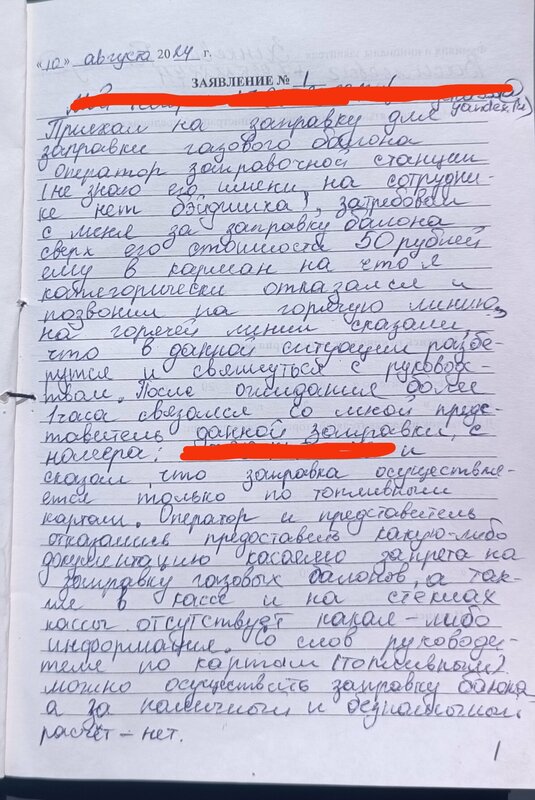 «10» августа 2024 г.
ЗАЯВЛЕНИЕ № 1
yandex.ru)
Приехал на заправку для
заправки газового балона
Оператор заправочной станции
(не знаю его имени, на сотрудни-
ке нет бэйджиха), затребовал
с меня за заправку балона
сверх его стоимости 50 рублей
ему в карман на что я
категорически отказался и
позвонил на горячую линию,
на горячей линии сказали,
что в данной ситуации разбе-
рутся и свяжуться с руковод-
твом. После ожидания более
1 часа связался со мной предс-
тавитель данной заправки, с
номера: и
сказал, что заправка осуществля-
ется только по топливным
картам. Оператор и представитель
отказались предоставить какую-либо
документацию касаемо запрета на
заправку газовых балонов, а так-
же в кассе и на стеклах
кассы отсутствует какая-либо
информация. Со слов руководи-
теля по картам (топливным)
можно осуществить заправку балона
а за наличный и безналичный
расчёт - нет.
1